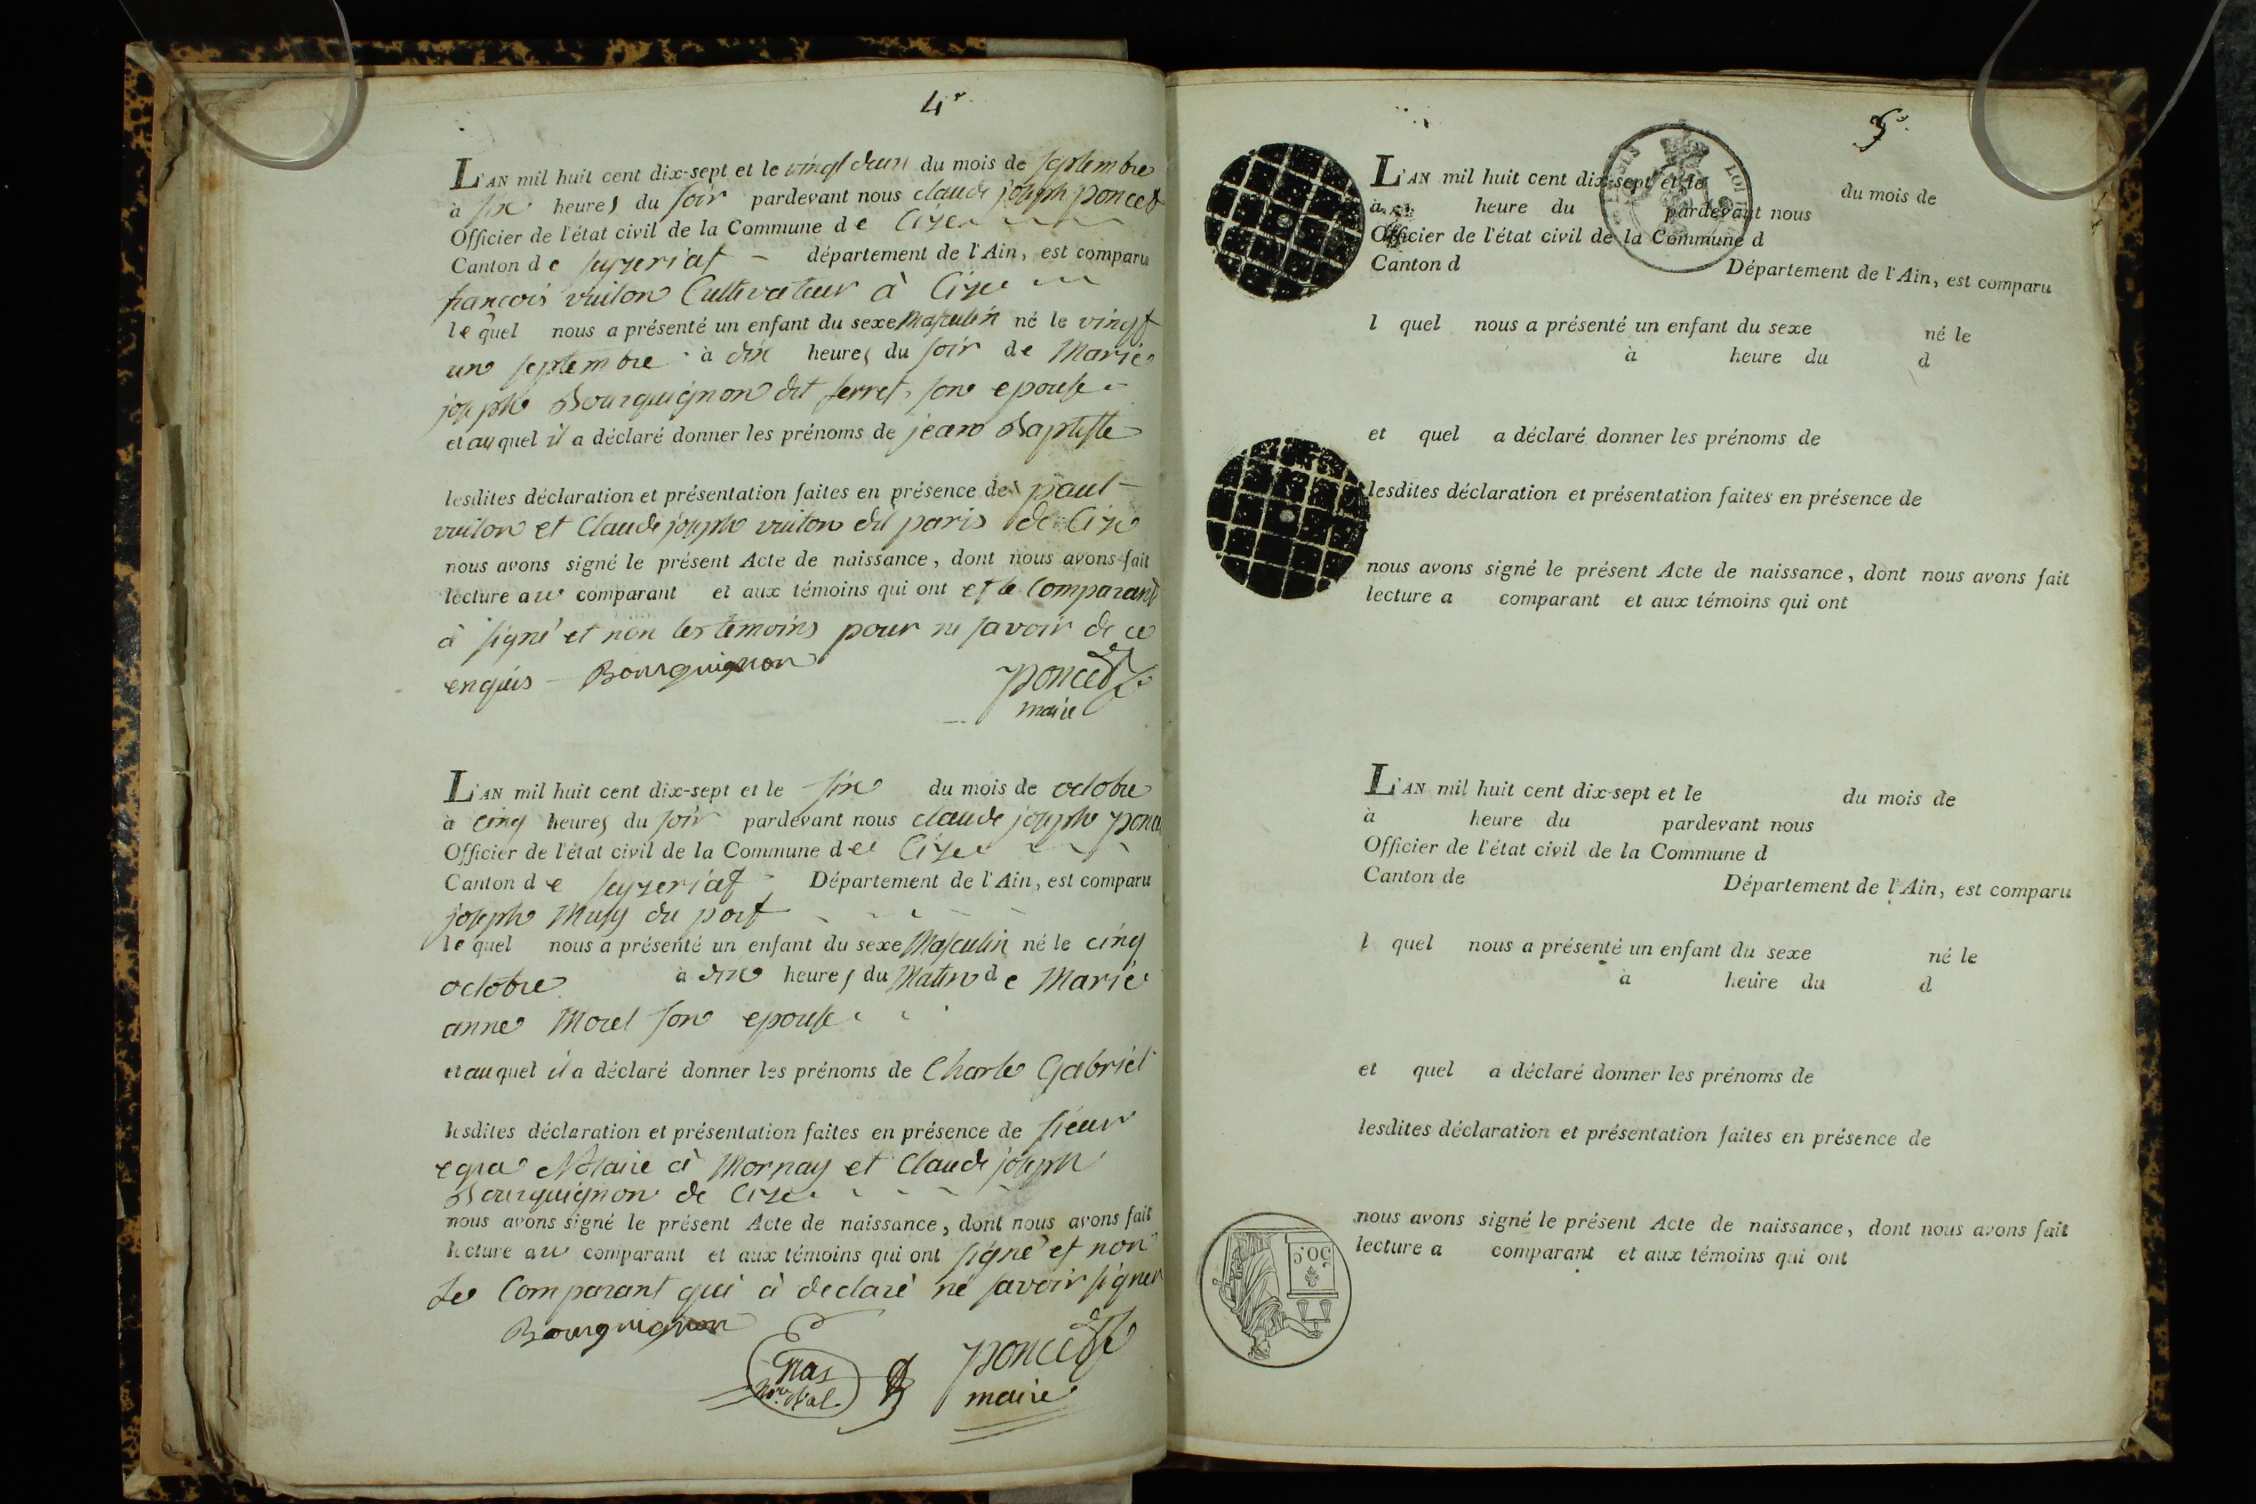 4e
L'AN mil huit cent dix-sept et le vingt deux du mois de septembre
à six heures du soir pardevant nous claude joseph poncet
Officier de l'état civil de la Commune de Cize
Canton de seyzeriat département de l'Ain, est comparu
francois vuiton Cultivateur à Cize
lequel nous a présenté un enfant du sexe Masculin né le vingt
un septembre à dix heures du soir de Marie
josephe Bourguignon dit ferret, son epouse
et auquel il a déclaré donner les prénoms de jean Baptiste
lesdites déclaration et présentation faites en présence de paul
vuiton et Claude joseph vuiton dit paris de Cize
nous avons signé le présent Acte de naissance, dont nous avons fait
lecture au comparant et aux témoins qui ont et le Comparant
à signé et non les temoins pour ne savoir de ce
enquis Bourguignon poncet
maire
L'AN mil huit cent dix-sept et le six du mois de octobre
à cinq heures du soir pardevant nous claude joseph ponc
Officier de l'état civil de la Commune de Cize
Canton de seyzeriat Département de l'Ain, est comparu
joseph Musy du port
lequel nous a présenté un enfant du sexe Masculin né le cinq
octobre à dix heures du Matin de Marie
anne Morel son epouse
et auquel il a déclaré donner les prénoms de Charle Gabriel
lesdites déclaration et présentation faites en présence de sieur
Notaire à Mornay et Claude joseph
Bourguignon de Cize
nous avons signé le présent Acte de naissance, dont nous avons fait
lecture au comparant et aux témoins qui ont signé et non
Le Comparant qui à declaré ne savoir signer
Bourguignon
poncet
maire
5
L'AN mil huit cent dix-sept et le du mois de
à heure du pardevant nous
Officier de l'état civil de la Commune d
Canton d Département de l'Ain, est comparu
l quel nous a présenté un enfant du sexe né le
à heure du d
et quel a déclaré donner les prénoms de
lesdites déclaration et présentation faites en présence de
nous avons signé le présent Acte de naissance, dont nous avons fait
lecture a comparant et aux témoins qui ont
L'AN mil huit cent dix-sept et le du mois de
à heure du pardevant nous
Officier de l'état civil de la Commune d
Canton de Département de l'Ain, est comparu
l quel nous a présenté un enfant du sexe né le
à heure du d
et quel a déclaré donner les prénoms de
lesdites déclaration et présentation faites en présence de
nous avons signé le présent Acte de naissance, dont nous avons fait
lecture a comparant et aux témoins qui ont
50.C